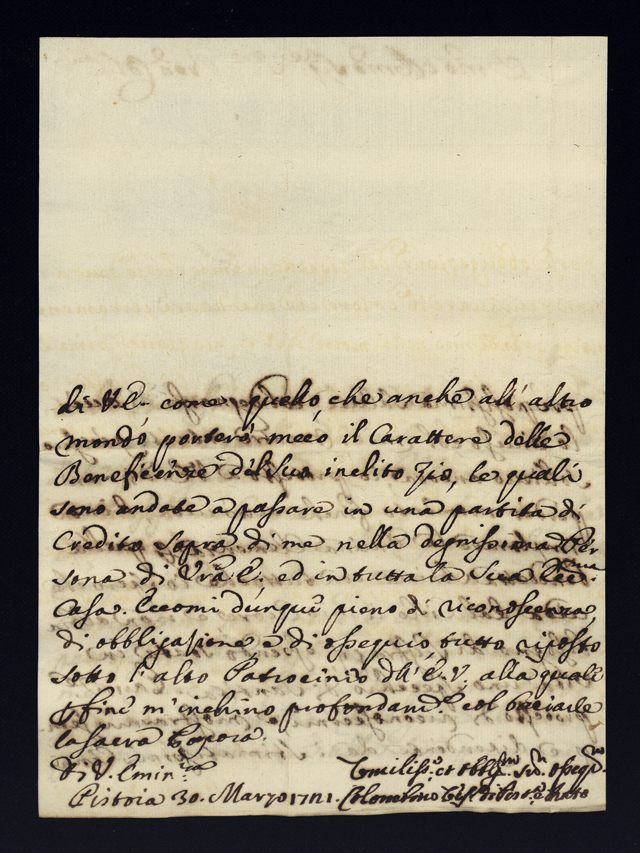 di V.E. come quello, che anche all' altro
mondo porterò meco il Carattere delle
Beneficenze del suo inclito Zio, le quali
sono andate a passare in una partita di
Credito sopra di me nella degnissima Per
sona di Vrã E. ed in tutta la sua Ecc.ma
Casa. Eccomi dunque pieno di riconoscenza,
di obbligazione, e di ossequio, tutto riposto
sotto l'alto Patrocinio dell' E.V. alla quale
fine m'inchino profondam.e col baciarle
la sacra Porpora.
di V. Emin.za
Umiliss.o et obblig.mo ser.re osseq.mo
Pistoia 30. Marzo 1721. Colombino